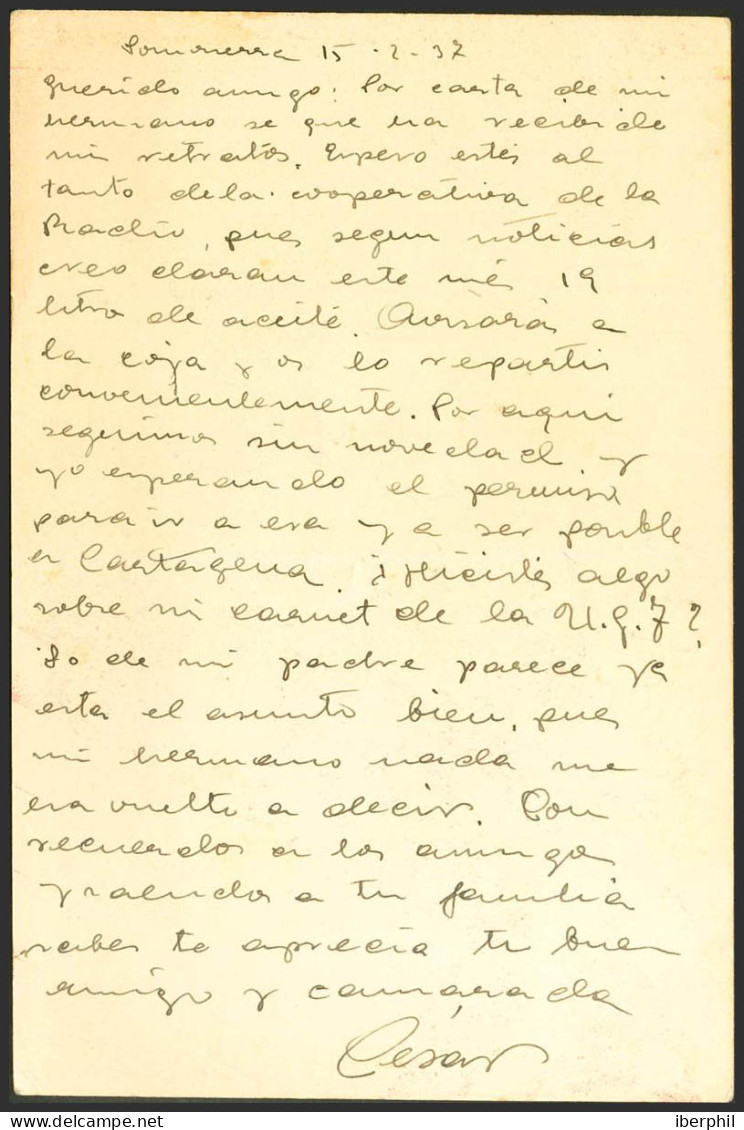 Somosierra 15-2-37
Querido amigo: Por carta de mi
hermano se que ha recibido
mi retratos. Espero estés al
tanto de la cooperativa de la
Radio, pues segun noticias
creo daran este mes
litro de aceite. Avisarás a
la coja y os lo repartis
convenientemente. Por aqui
seguimos sin novedad y
yo esperando el permiso
para ir a esa y a ser posible
a Cartagena. ¿Hiciste algo
sobre mi carnet de la U.G.T?
Lo de mi padre parece ya
esta el asunto bien, pues
mi hermano nada me
ha vuelto a decir. Con
recuerdos a los amigos
y saludos a tu familia
sabes te aprecia tu buen
amigo y camarada
Cesar
delcampe.net
iberphil